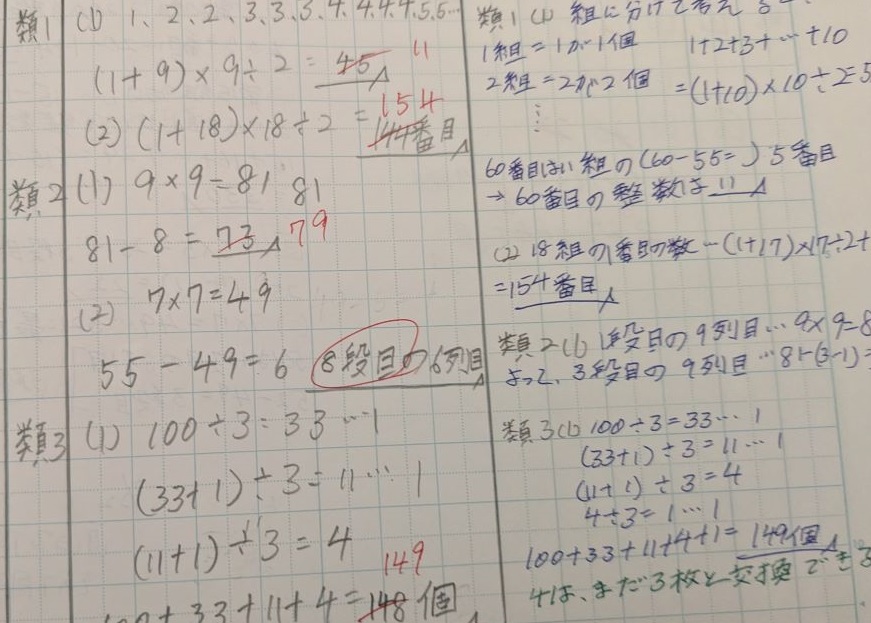 類1 (1) 1、2、2、3、3、3、4、4、4、4、5、5…
(1+9)×9÷2=45 11
(2) (1+18)×18÷2=144番目 154
類2 (1) 9×9=81 81
81-8=73 79
(2) 7×7=49
55-49=6 8段目の6列目
類3 (1) 100÷3=33…1
(33+1)÷3=11…1
(11+1)÷3=4
149
+33+11+4=148個
類1 (1) 組に分けて考える
1組=1が1個 1+2+3+…+10
2組=2が2個 =(1+10)×10÷2=5
⋮
60番目は11組の(60-55=)5番目
→60番目の整数は11
(2) 18組の1番目の数…(1+17)×17÷2+
=154番目
類2(1) 1段目の9列目…9×9=8
よって、3段目の9列目…81-(3-1)=
類3(1) 100÷3=33…1
(33+1)÷3=11…1
(11+1)÷3=4
4÷3=1…1
100+33+11+4+1=149個
4は、まだ3枚と交換できる